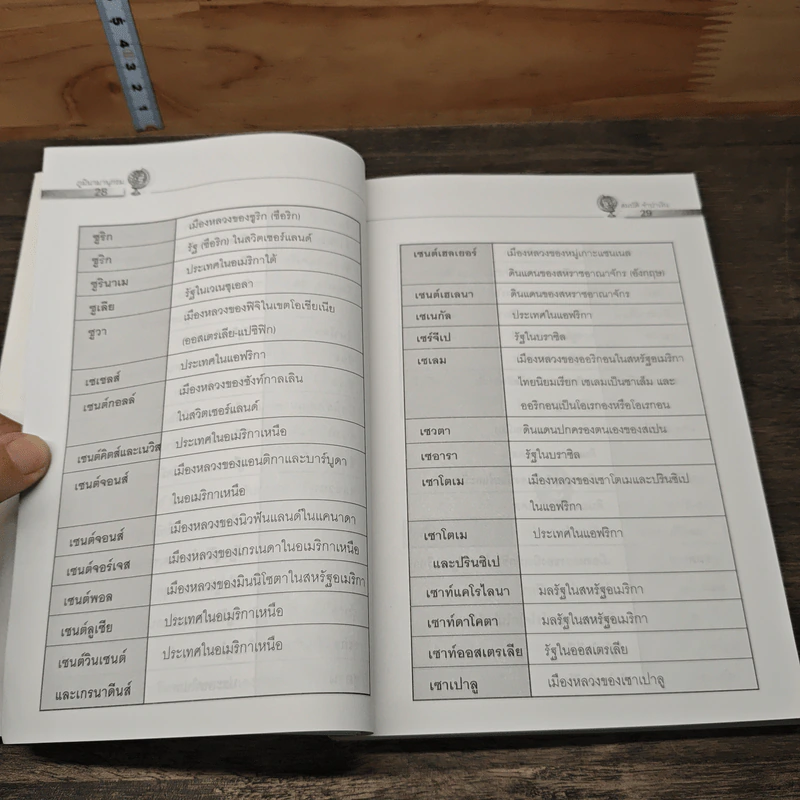 5
4
3
2
1
ภูมินามานุกรม
28
ซูริก เมืองหลวงของซูริก (ซือริก)
ซูริก รัฐ (ซือริก) ในสวิตเซอร์แลนด์
ซูรินาเม ประเทศในอเมริกาใต้
ซูเลีย รัฐในเวเนซุเอลา
ซูวา เมืองหลวงของฟิจิในเขตโอเชียเนีย
(ออสเตรเลีย-แปซิฟิก)
เซเชลส์ ประเทศในแอฟริกา
เซนต์กอลล์ เมืองหลวงของซังท์กาลเลิน
ในสวิตเซอร์แลนด์
เซนต์คิตส์และเนวิส ประเทศในอเมริกาเหนือ
เซนต์จอนส์ เมืองหลวงของแอนติกาและบาร์บูดา
ในอเมริกาเหนือ
เซนต์จอนส์ เมืองหลวงของนิวฟันแลนด์ในแคนาดา
เซนต์จอร์เจส เมืองหลวงของเกรเนดาในอเมริกาเหนือ
เซนต์พอล เมืองหลวงของมินนิโซตาในสหรัฐอเมริกา
เซนต์ลูเซีย ประเทศในอเมริกาเหนือ
เซนต์วินเซนต์ ประเทศในอเมริกาเหนือ
และเกรนาดีนส์
29
เซนต์เฮลเยอร์ เมืองหลวงของหมู่เกาะแชนเนล
ดินแดนของสหราชอาณาจักร (อังกฤษ)
เซนต์เฮเลนา ดินแดนของสหราชอาณาจักร
เซเนกัล ประเทศในแอฟริกา
เซร์จีเป รัฐในบราซิล
เซเลม เมืองหลวงของออริกอนในสหรัฐอเมริกา
ไทยนิยมเรียก เซเลมเป็นซาเล็ม และ
ออริกอนเป็นโอเรกองหรือโอเรกอน
เซวตา ดินแดนปกครองตนเองของสเปน
เซอารา รัฐในบราซิล
เซาโตเม เมืองหลวงของเซาโตเมและปรินซิเป
ในแอฟริกา
เซาโตเม ประเทศในแอฟริกา
และปรินซิเป
เซาท์แคโรไลนา มลรัฐในสหรัฐอเมริกา
เซาท์ดาโคตา มลรัฐในสหรัฐอเมริกา
เซาท์ออสเตรเลีย รัฐในออสเตรเลีย
เซาเปาลู เมืองหลวงของเซาเปาลู